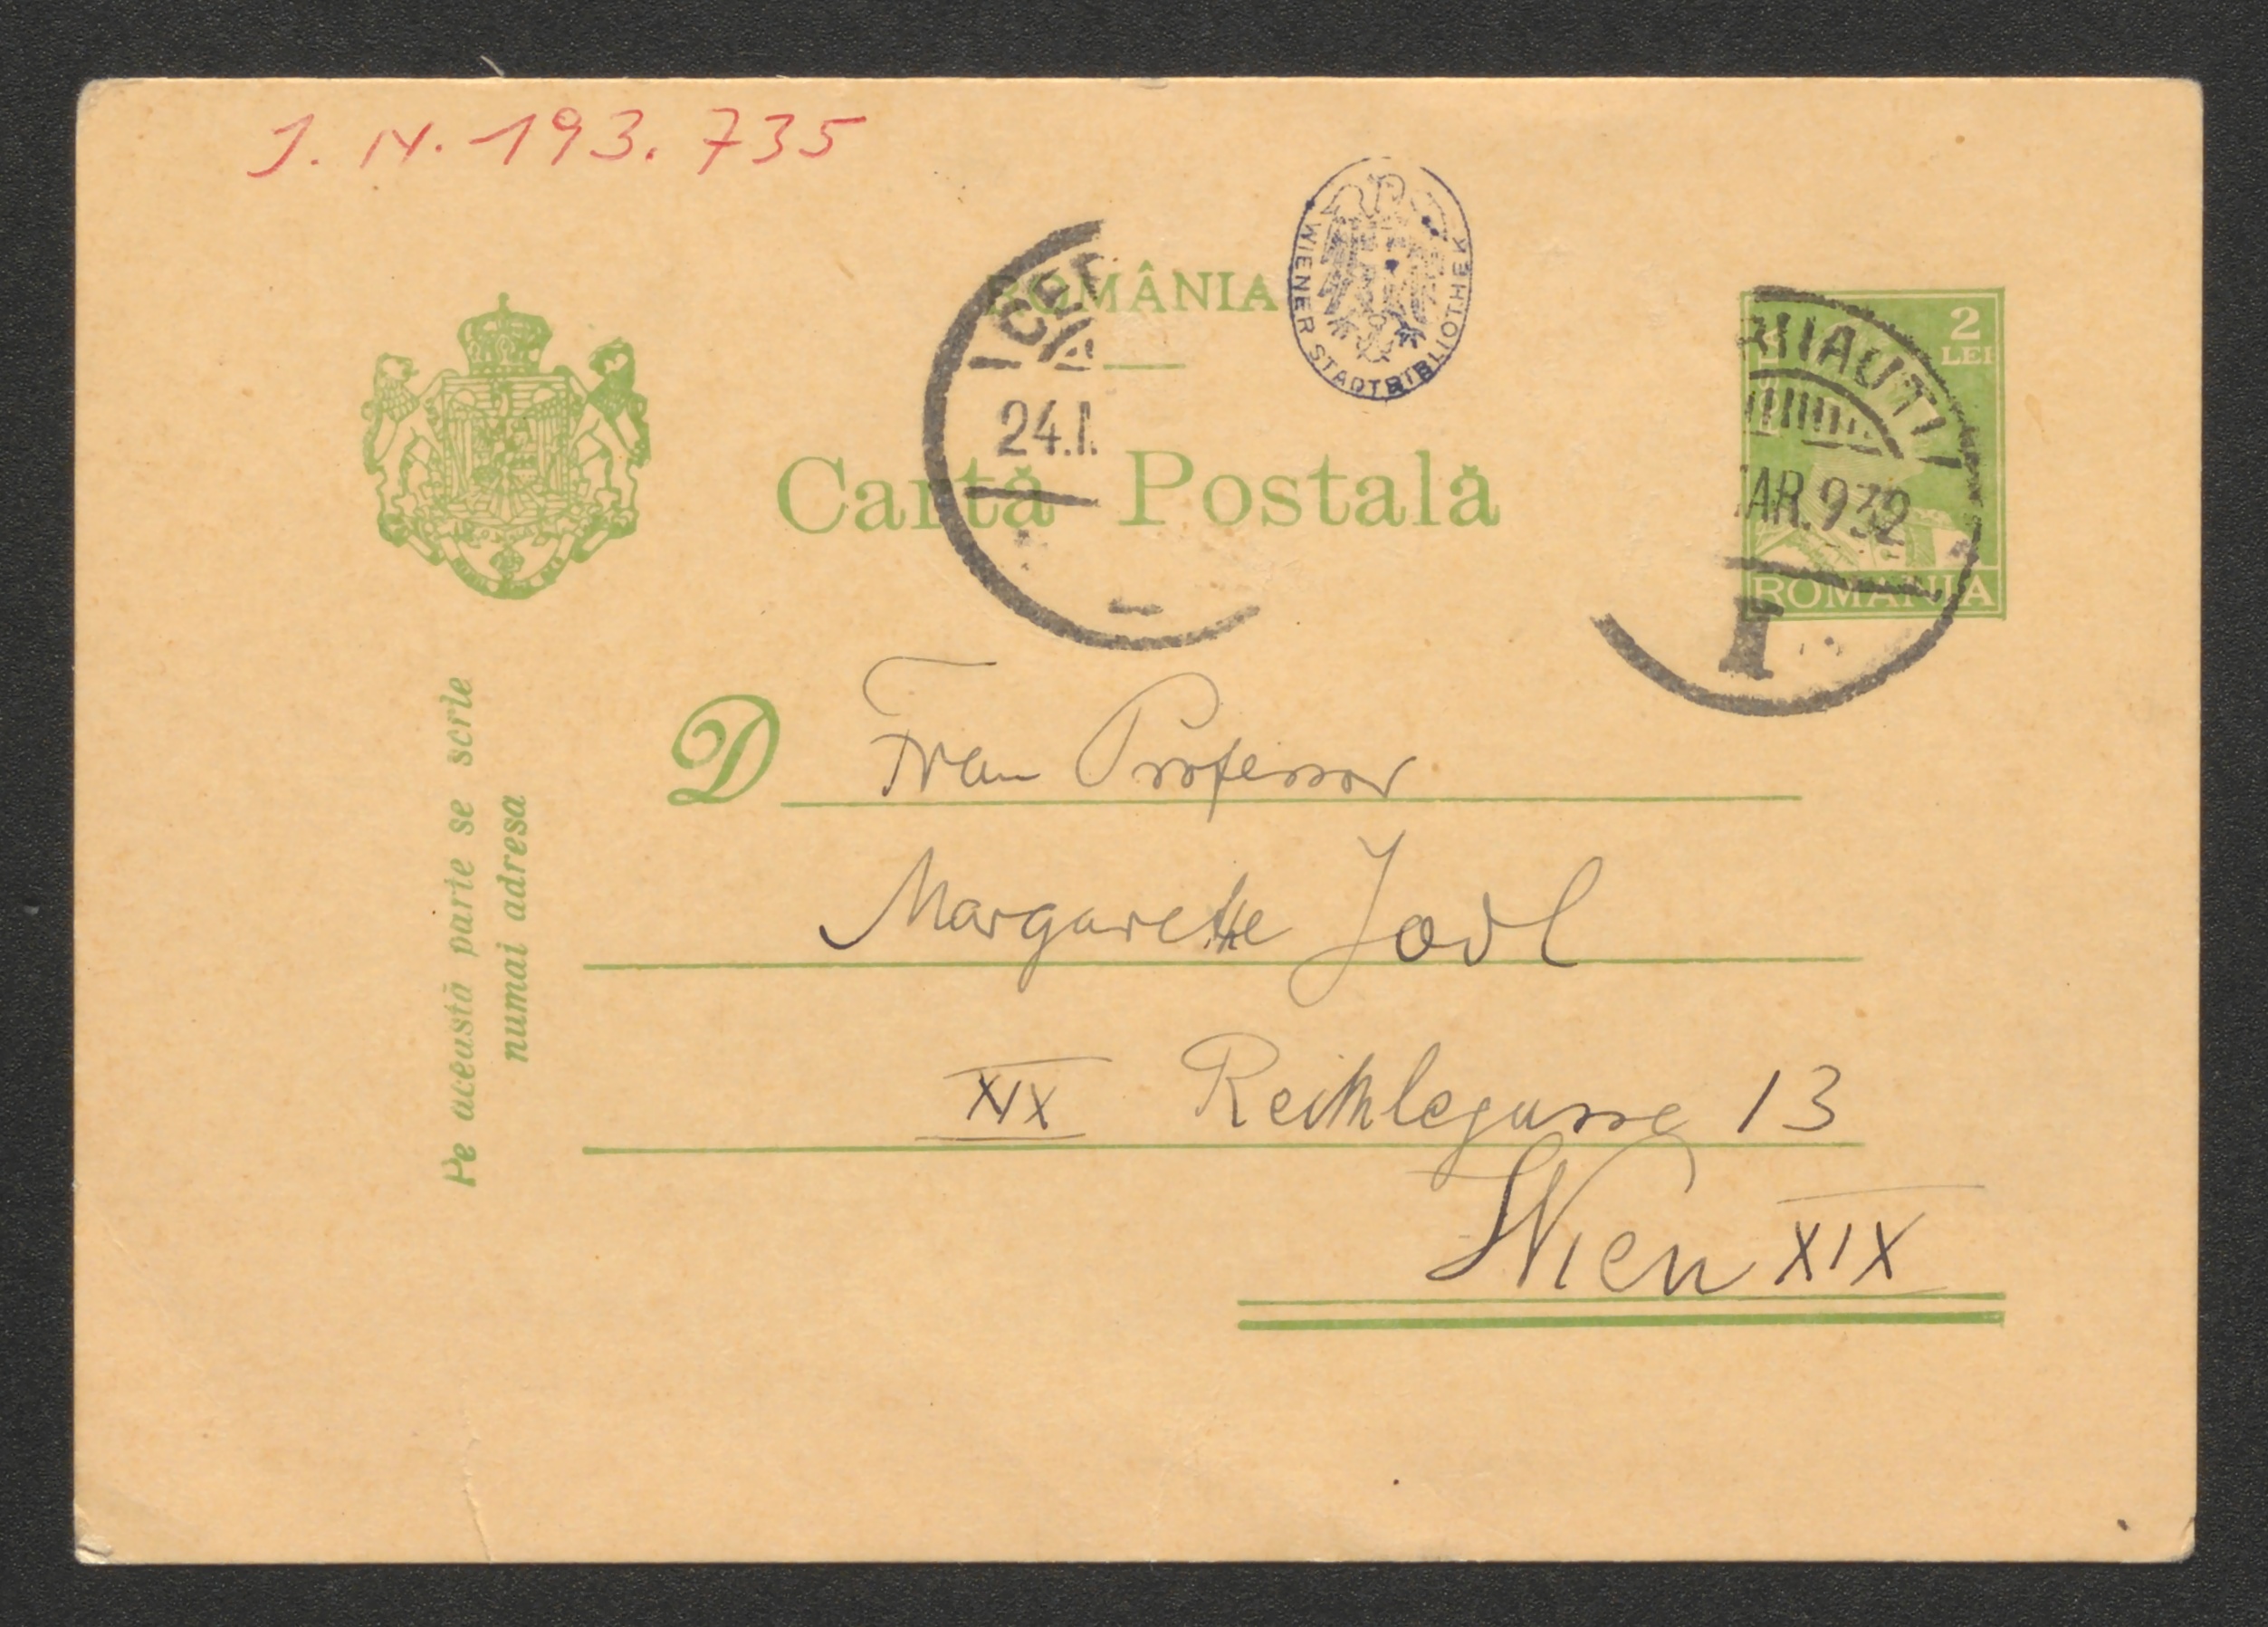 J. N. 193.735
ROMÂNIA
WIENER STADTBIBLIOTHEK
Cartă Postală
24.
AR.932
I
2
LEI
ROMANIA
Pe aceustă parte se scrie
numai adresa
D Frau Professor
Margarethe Jodl
XIX Reithlegasse 13
Wien XIX